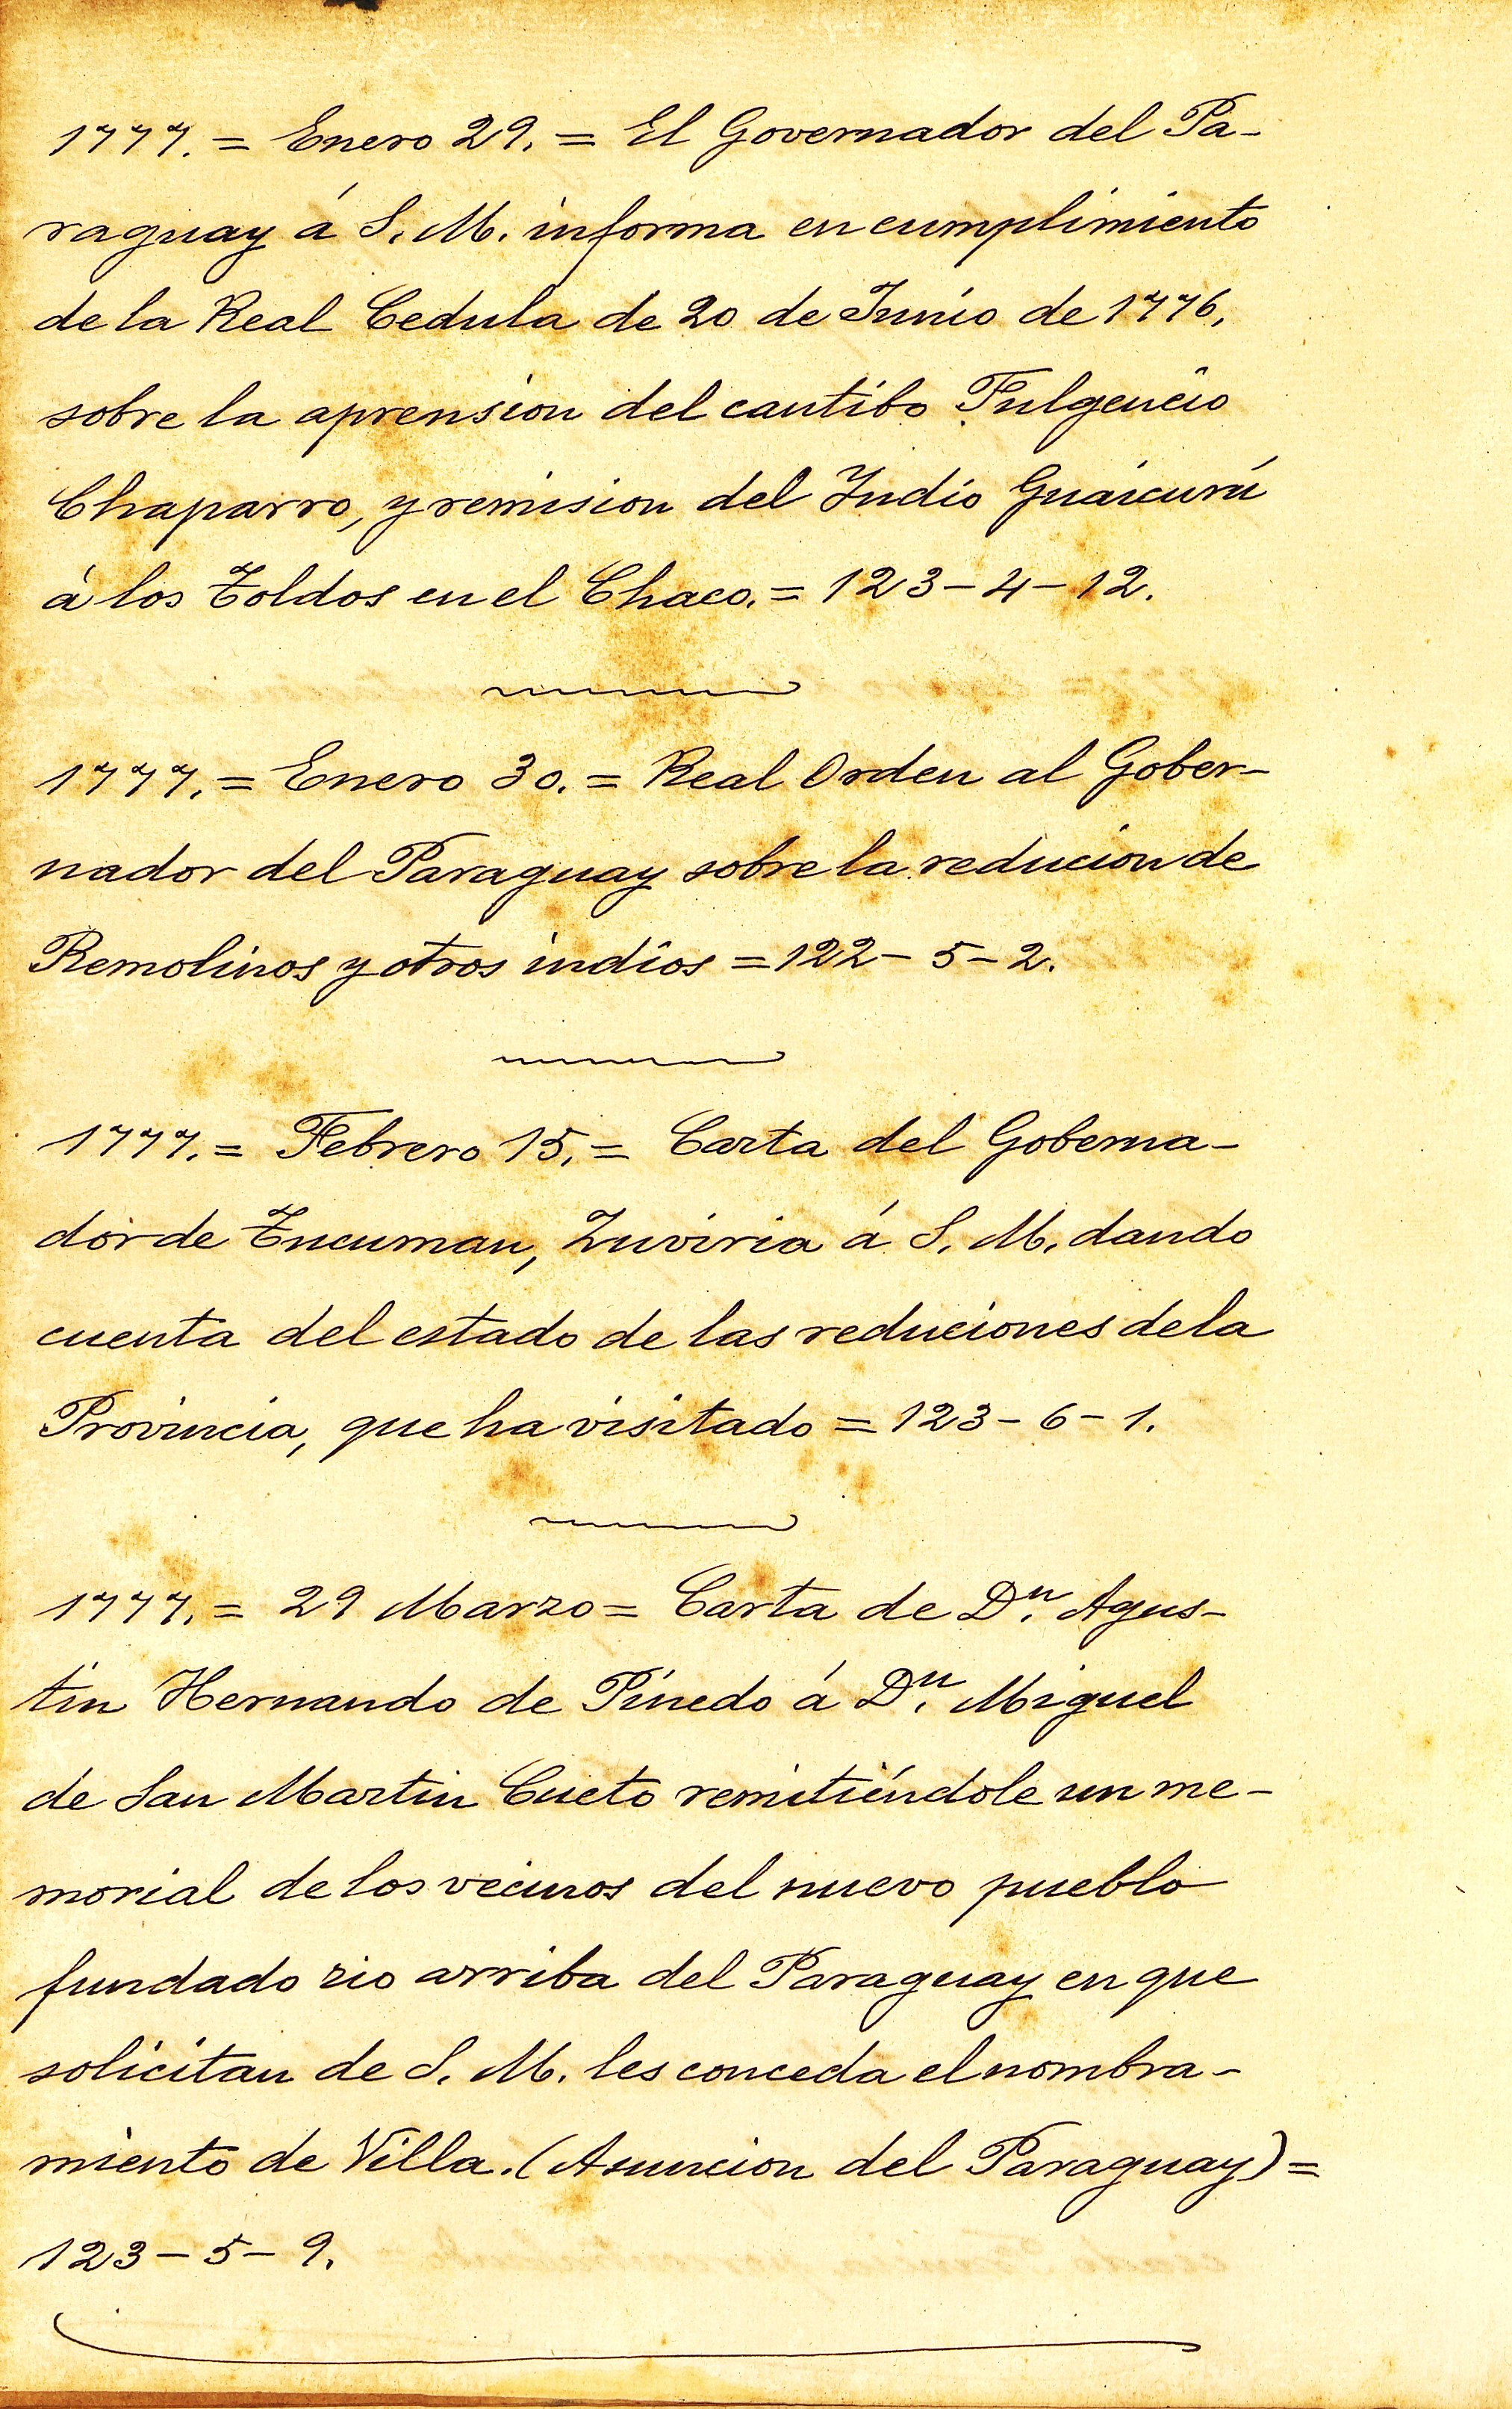 1777. = Enero 29. = El Governador del Pa-
raguay á S. M. informa en cumplimiento
de la Real Cedula de 20 de Junio de 1776,
sobre la aprension del cautibo Fulgencio
Chaparro, y remision del Indio Guaicurú
á los Toldos en el Chaco. = 123 - 4 - 12.
1777. = Enero 30. = Real Orden al Gober-
nador del Paraguay sobre la reducion de
Remolinos y otros indios = 122 - 5 - 2.
1777. = Febrero 15. = Carta del Goberna-
dor de Tucuman, Zuviria á S. M. dando
cuenta del estado de las reduciones de la
Provincia, que ha visitado = 123 - 6 - 1.
1777. = 29 Marzo = Carta de Dn. Agus-
tin Hernando de Pinedo á Dn. Miguel
de San Martin Cueto remitiéndole un me-
morial de los vecinos del nuevo pueblo
fundado rio arriba del Paraguay en que
solicitan de S. M. les conceda el nombra-
miento de Villa. (Asuncion del Paraguay) =
123 - 5 - 9.